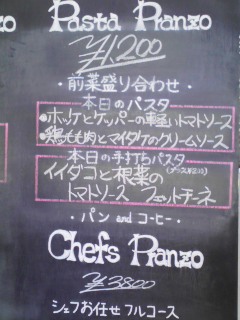 Pasta Pranzo
¥1,200
・前菜盛り合わせ・
本日のパスタ
●ホッケとケッパーの軽いトマトソース
●鶏もも肉とマイタケのクリームソース
本日の手打ちパスタ
イイダコと根菜の
トマトソース フェットチーネ
・パン and コーヒー・
Chefs Pranzo
¥3800
シェフお任せフルコース